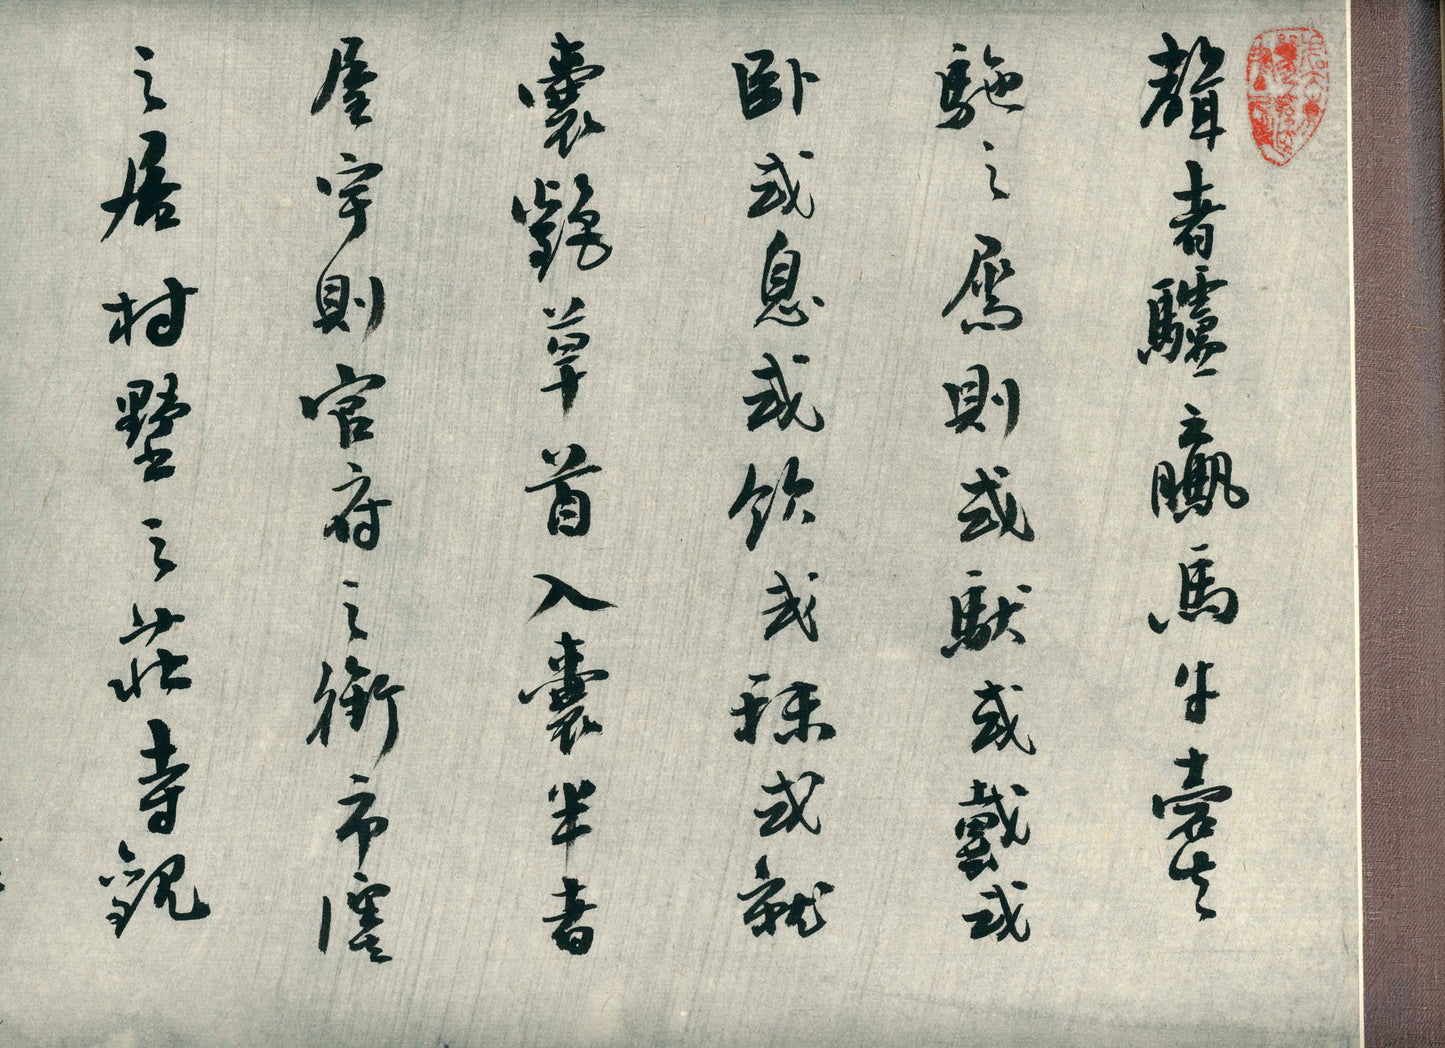 聲者驢驘馬牛橐
駞之屬則或馱或載或
臥或息或飲或秣或就
囊齕草首入囊半者
屋宇則官府之衙市廛
之居村墅之莊寺觀